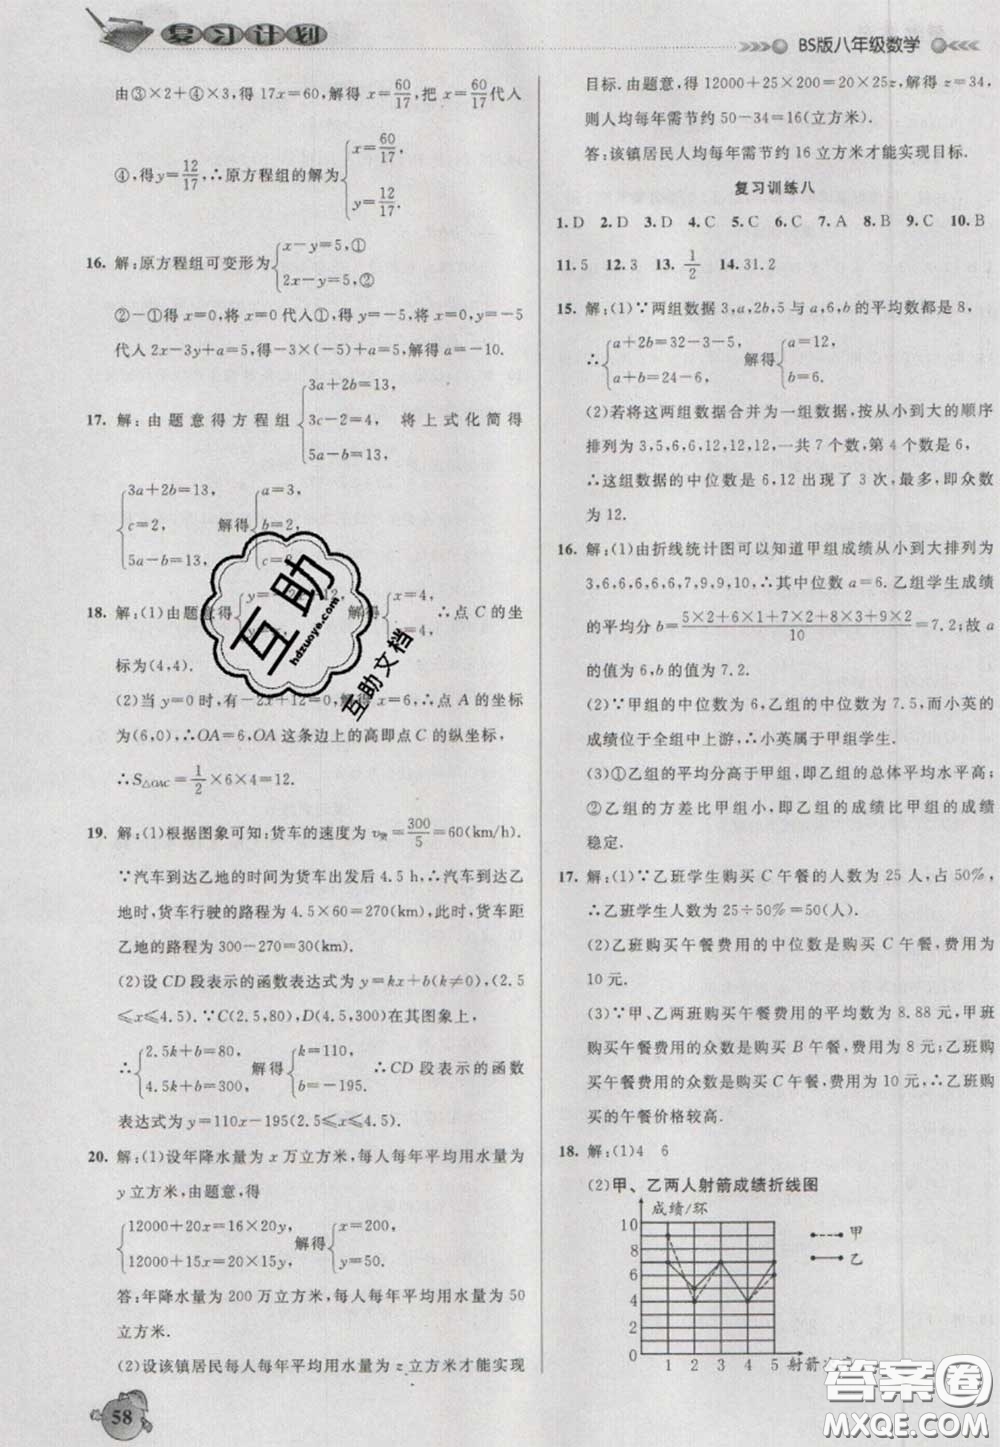 复习计划
BS版八年级数学
由③×2+④×3,得 17x=60,解得 x=60/17,把 x=60/17 代入
④,得 y=12/17,∴原方程组的解为{x=60/17, y=12/17.
16. 解:原方程组可变形为{x-y=5,① 2x-y=5,②
②-①得 x=0,将 x=0代入①,得 y=-5,将 x=0,y=-5
代入 2x-3y+a=5,得-3×(-5)+a=5,解得 a=-10.
17. 解:由题意得方程组{3a+2b=13, 3c-2=4, 5a-b=13, 将上式化简得
{3a+2b=13, c=2, 5a-b=13, 解得{a=3, b=2,
18. 解:(1)由题意得 解得{x=4, =4, ∴点 C 的坐
标为(4,4).
(2)当 y=0时,有-2x+12=0,解得 x=6,∴点 A 的坐标
为(6,0),∴OA=6,OA这条边上的高即点 C 的纵坐标,
∴S△OAC=1/2×6×4=12.
19. 解:(1)根据图象可知:货车的速度为 v货=300/5=60(km/h).
∵汽车到达乙地的时间为货车出发后4.5 h,∴汽车到达乙
地时,货车行驶的路程为 4.5×60=270(km),此时,货车距
乙地的路程为 300-270=30(km).
(2)设 CD 段表示的函数表达式为 y=kx+b(k≠0)(2.5
≤x≤4.5).∵C(2.5,80),D(4.5,300)在其图象上,
∴{2.5k+b=80, 4.5k+b=300, 解得{k=110, b=-195. ∴CD 段表示的函数
表达式为 y=110x-195(2.5≤x≤4.5).
20. 解:(1)设年降水量为 x 万立方米,每人每年平均用水量为
y立方米,由题意,得
{12000+20x=16×20y, 12000+15x=20×15y, 解得{x=200, y=50.
答:年降水量为 200 万立方米,每人每年平均用水量为 50
立方米.
(2)设该镇居民每人每年平均用水量为 z立方米才能实现
58
目标.由题意,得 12000+25×200=20×25z,解得 z=34,
则人均每年需节约 50-34=16(立方米).
答:该镇居民人均每年需节约 16 立方米才能实现目标.
复习训练八
1.D 2.D 3.D 4.C 5.C 6.C 7.A 8.B 9.C 10.B
11.5 12.3 13. 1/2 14.31.2
15. 解:(1)∵两组数据 3,a,2b,5与 a,6,b 的平均数都是 8,
∴{a+2b=32-3-5, a+b=24-6, 解得{a=12, b=6.
(2)若将这两组数据合并为一组数据,按从小到大的顺序
排列为 3,5,6,6,12,12,12,一共 7 个数,第 4 个数是 6,
∴这组数据的中位数是 6,12 出现了 3 次,最多,即众数
为 12.
16. 解:(1)由折线统计图可以知道甲组成绩从小到大排列为
3,6,6,6,6,6,7,9,9,10,∴其中位数 a=6.乙组学生成绩
的平均分 b=5×2+6×1+7×2+8×3+9×2/10=7.2;故 a
的值为 6,b的值为 7.2.
(2)∵甲组的中位数为 6,乙组的中位数为 7.5,而小英的
成绩位于全组中上游,∴小英属于甲组学生.
(3)①乙组的平均分高于甲组,即乙组的总体平均水平高;
②乙组的方差比甲组小,即乙组的成绩比甲组的成绩
稳定.
17. 解:(1)∵乙班学生购买 C 午餐的人数为 25 人,占 50%,
∴乙班学生人数为 25÷50%=50(人).
(2)乙班购买午餐费用的中位数是购买 C 午餐,费用为
10 元.
(3)∵甲、乙两班购买午餐费用的平均数为 8.88 元,甲班
购买午餐费用的众数是购买 B 午餐,费用为 8 元;乙班
购买午餐费用的众数是购买 C 午餐,费用为 10 元,∴乙班购
买的午餐价格较高.
18. 解:(1)4 6
(2)甲、乙两人射箭成绩折线图
成绩/环
10
8
6
4
2
0
1 2 3 4 5 射箭次序
甲
乙
互助
hdzuoye.com
互助文档
答案圈
MXQE.COM